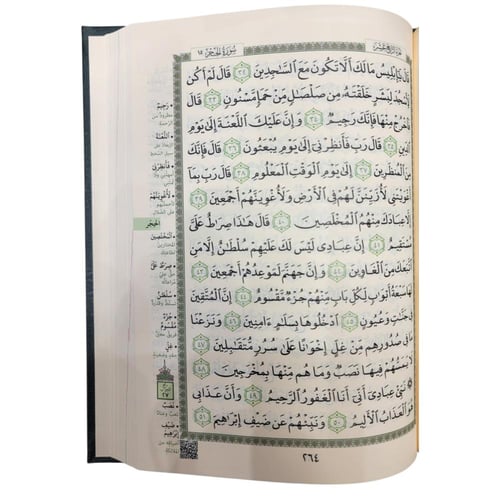 سورة الحجر ١٥
الجزء الرابع عشر
قَالَ يَٰٓإِبْلِيسُ مَا لَكَ أَلَّا تَكُونَ مَعَ ٱلسَّٰجِدِينَ ٣٢ قَالَ لَمْ أَكُن
لِّأَسْجُدَ لِبَشَرٍ خَلَقْتَهُۥ مِن صَلْصَٰلٍ مِّنْ حَمَإٍ مَّسْنُونٍ ٣٣ قَالَ
فَٱخْرُجْ مِنْهَا فَإِنَّكَ رَجِيمٌ ٣٤ وَإِنَّ عَلَيْكَ ٱللَّعْنَةَ إِلَىٰ يَوْمِ
ٱلدِّينِ ٣٥ قَالَ رَبِّ فَأَنظِرْنِىٓ إِلَىٰ يَوْمِ يُبْعَثُونَ ٣٦ قَالَ فَإِنَّكَ
مِنَ ٱلْمُنظَرِينَ ٣٧ إِلَىٰ يَوْمِ ٱلْوَقْتِ ٱلْمَعْلُومِ ٣٨ قَالَ رَبِّ بِمَآ
أَغْوَيْتَنِى لَأُزَيِّنَنَّ لَهُمْ فِى ٱلْأَرْضِ وَلَأُغْوِيَنَّهُمْ أَجْمَعِينَ ٣٩
إِلَّا عِبَادَكَ مِنْهُمُ ٱلْمُخْلَصِينَ ٤٠ قَالَ هَٰذَا صِرَٰطٌ عَلَىَّ
مُسْتَقِيمٌ ٤١ إِنَّ عِبَادِى لَيْسَ لَكَ عَلَيْهِمْ سُلْطَٰنٌ إِلَّا مَنِ
ٱتَّبَعَكَ مِنَ ٱلْغَاوِينَ ٤٢ وَإِنَّ جَهَنَّمَ لَمَوْعِدُهُمْ أَجْمَعِينَ ٤٣
لَهَا سَبْعَةُ أَبْوَٰبٍ لِّكُلِّ بَابٍ مِّنْهُمْ جُزْءٌ مَّقْسُومٌ ٤٤ إِنَّ ٱلْمُتَّقِينَ
فِى جَنَّٰتٍ وَعُيُونٍ ٤٥ ٱدْخُلُوهَا بِسَلَٰمٍ ءَامِنِينَ ٤٦ وَنَزَعْنَا
مَا فِى صُدُورِهِم مِّنْ غِلٍّ إِخْوَٰنًا عَلَىٰ سُرُرٍ مُّتَقَٰبِلِينَ ٤٧
لَا يَمَسُّهُمْ فِيهَا نَصَبٌ وَمَا هُم مِّنْهَا بِمُخْرَجِينَ ٤٨
۞ نَبِّئْ عِبَادِىٓ أَنِّىٓ أَنَا ٱلْغَفُورُ ٱلرَّحِيمُ ٤٩ وَأَنَّ عَذَابِى
هُوَ ٱلْعَذَابُ ٱلْأَلِيمُ ٥٠ وَنَبِّئْهُمْ عَن ضَيْفِ إِبْرَٰهِيمَ ٥١
٢٦٤
رَجِيمٌ
اللَّعْنَةَ
فَأَنظِرْنِي
لَأُغْوِيَنَّهُمْ
الحِجْر
المُخْلَصِينَ
صِرَاطٌ عَلَيَّ
سُلْطَانٌ
جُزْءٌ
مَقْسُومٌ
غِلٍّ
نَصَبٌ
ضَيْفِ
إِبْرَاهِيمَ